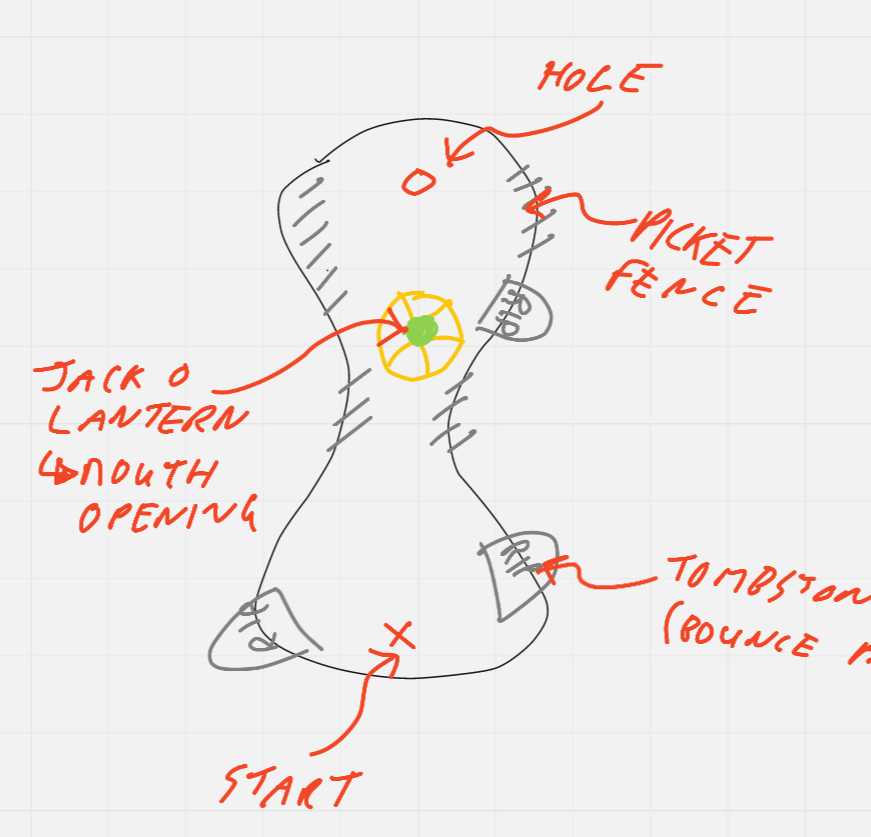 HOLE
PICKET
FENCE
JACK O
LANTERN
↳ MOUTH
OPENING
TOMBSTON
(BOUNCE
START
X